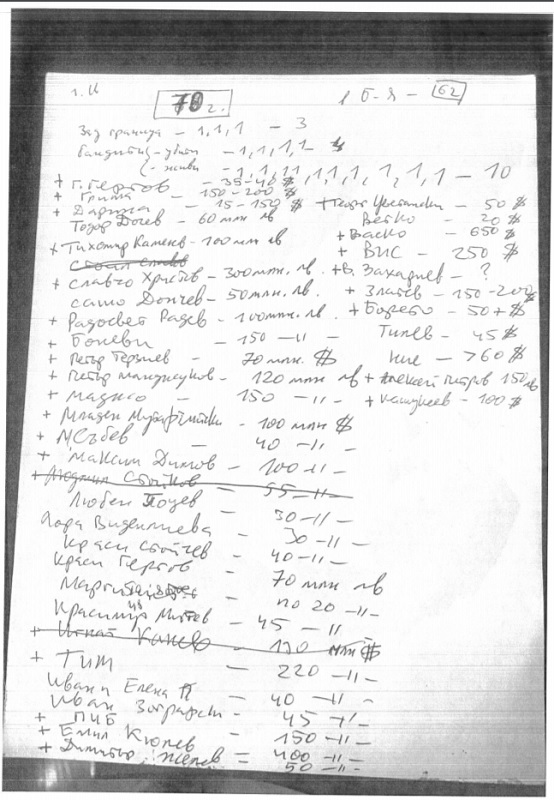 г. К
70 г.
1 б-я - 62
Зад граница - 1,1,1 - 3
бандити - убити - 1,1,1,1 - 4
- живи - 1,1,11,11,1,1,1,1 - 10
+ Г. Гергов - 35-40 $
+ Гриша - 150-200 $
+ Дарина - 15-150 $
Тодор Дочев - 60 млн лв
+ Тихомир Каменов - 100 млн лв
+ Славчо Христов - 300 млн. лв.
Сашо Дончев - 50 млн. лв.
+ Радосвет Радев - 100 млн. лв
+ Боневи - 150 -11-
+ Петър Терзиев - 70 млн. $
+ Петър Манджуков - 120 млн лв
+ Маджо - 150 -11-
+ Младен - 100 млн $
+ - 40 -11-
+ Максим Димов - 100 -11-
+ Людмил Стойков = 55 -11-
Любен - 30 -11-
Лора Виденлиева - 30 -11-
Краси Стойчев - 40 -11-
Краси Гергов - 70 млн лв
по 20 -11-
Красимир - 45 -11-
+ Игнат Канев - 130 млн $
+ ТИМ - 220 -11-
Иван и Елена П - 40 -11-
Иван Зографски - 45 -11-
+ ПИБ - 150 -11-
+ Емил Кюлев = 400 -11-
+ Димитър Желев = 50 -11-
- 50 $
Ветко - 20 $
+ Васко - 650 $
+ ВИС - 250 $
+ В. Захариев - ?
+ Златев - 150-200 $
+ Борето - 50+ $
Тилев - 45 $
Ние - >60 $
+ Алексей Петров 150 лв
+ - 100 $